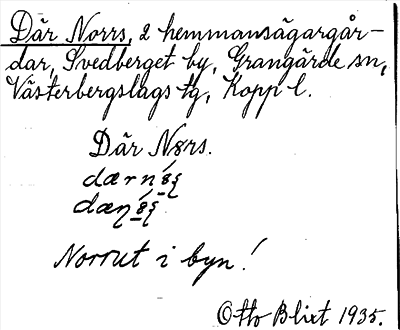 Där Norrs, 2 hemmansägargår-
dar, Svedberget by, Grangärde sn,
Västerbergslags tg, Kopp l.
Där N8rs.
dærn
dæŋ
Norrut i byn!
Otto Blixt 1935.